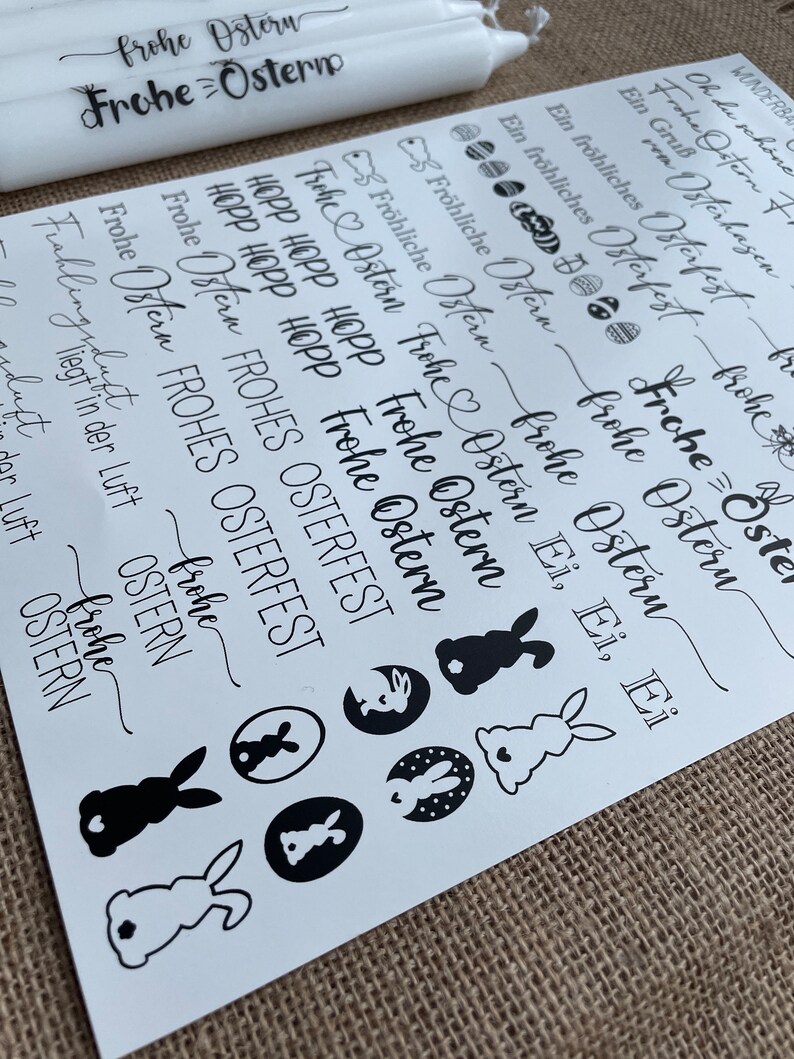 frohe Ostern
Frohe Ostern
WUNDERBA
Oh du schöne
Frohe Ostern
Ein Gruß
vom Osterhasen
Ein fröhliches Osterfest
Ein fröhliches Osterfest
Fröhliche Ostern
Fröhliche Ostern
Frohe Ostern
HOPP HOPP HOPP
HOPP HOPP HOPP
Frohe Ostern
Frohe Ostern
Frühlingsduft
liegt in der Luft
in der Luft
frohe
Frohe Ostern
frohe Ostern
frohe Ostern
Frohe Ostern
Frohe Ostern
Frohe Ostern
FROHES OSTERFEST
FROHES OSTERFEST
frohe
OSTERN
frohe
OSTERN
Ei, Ei, Ei